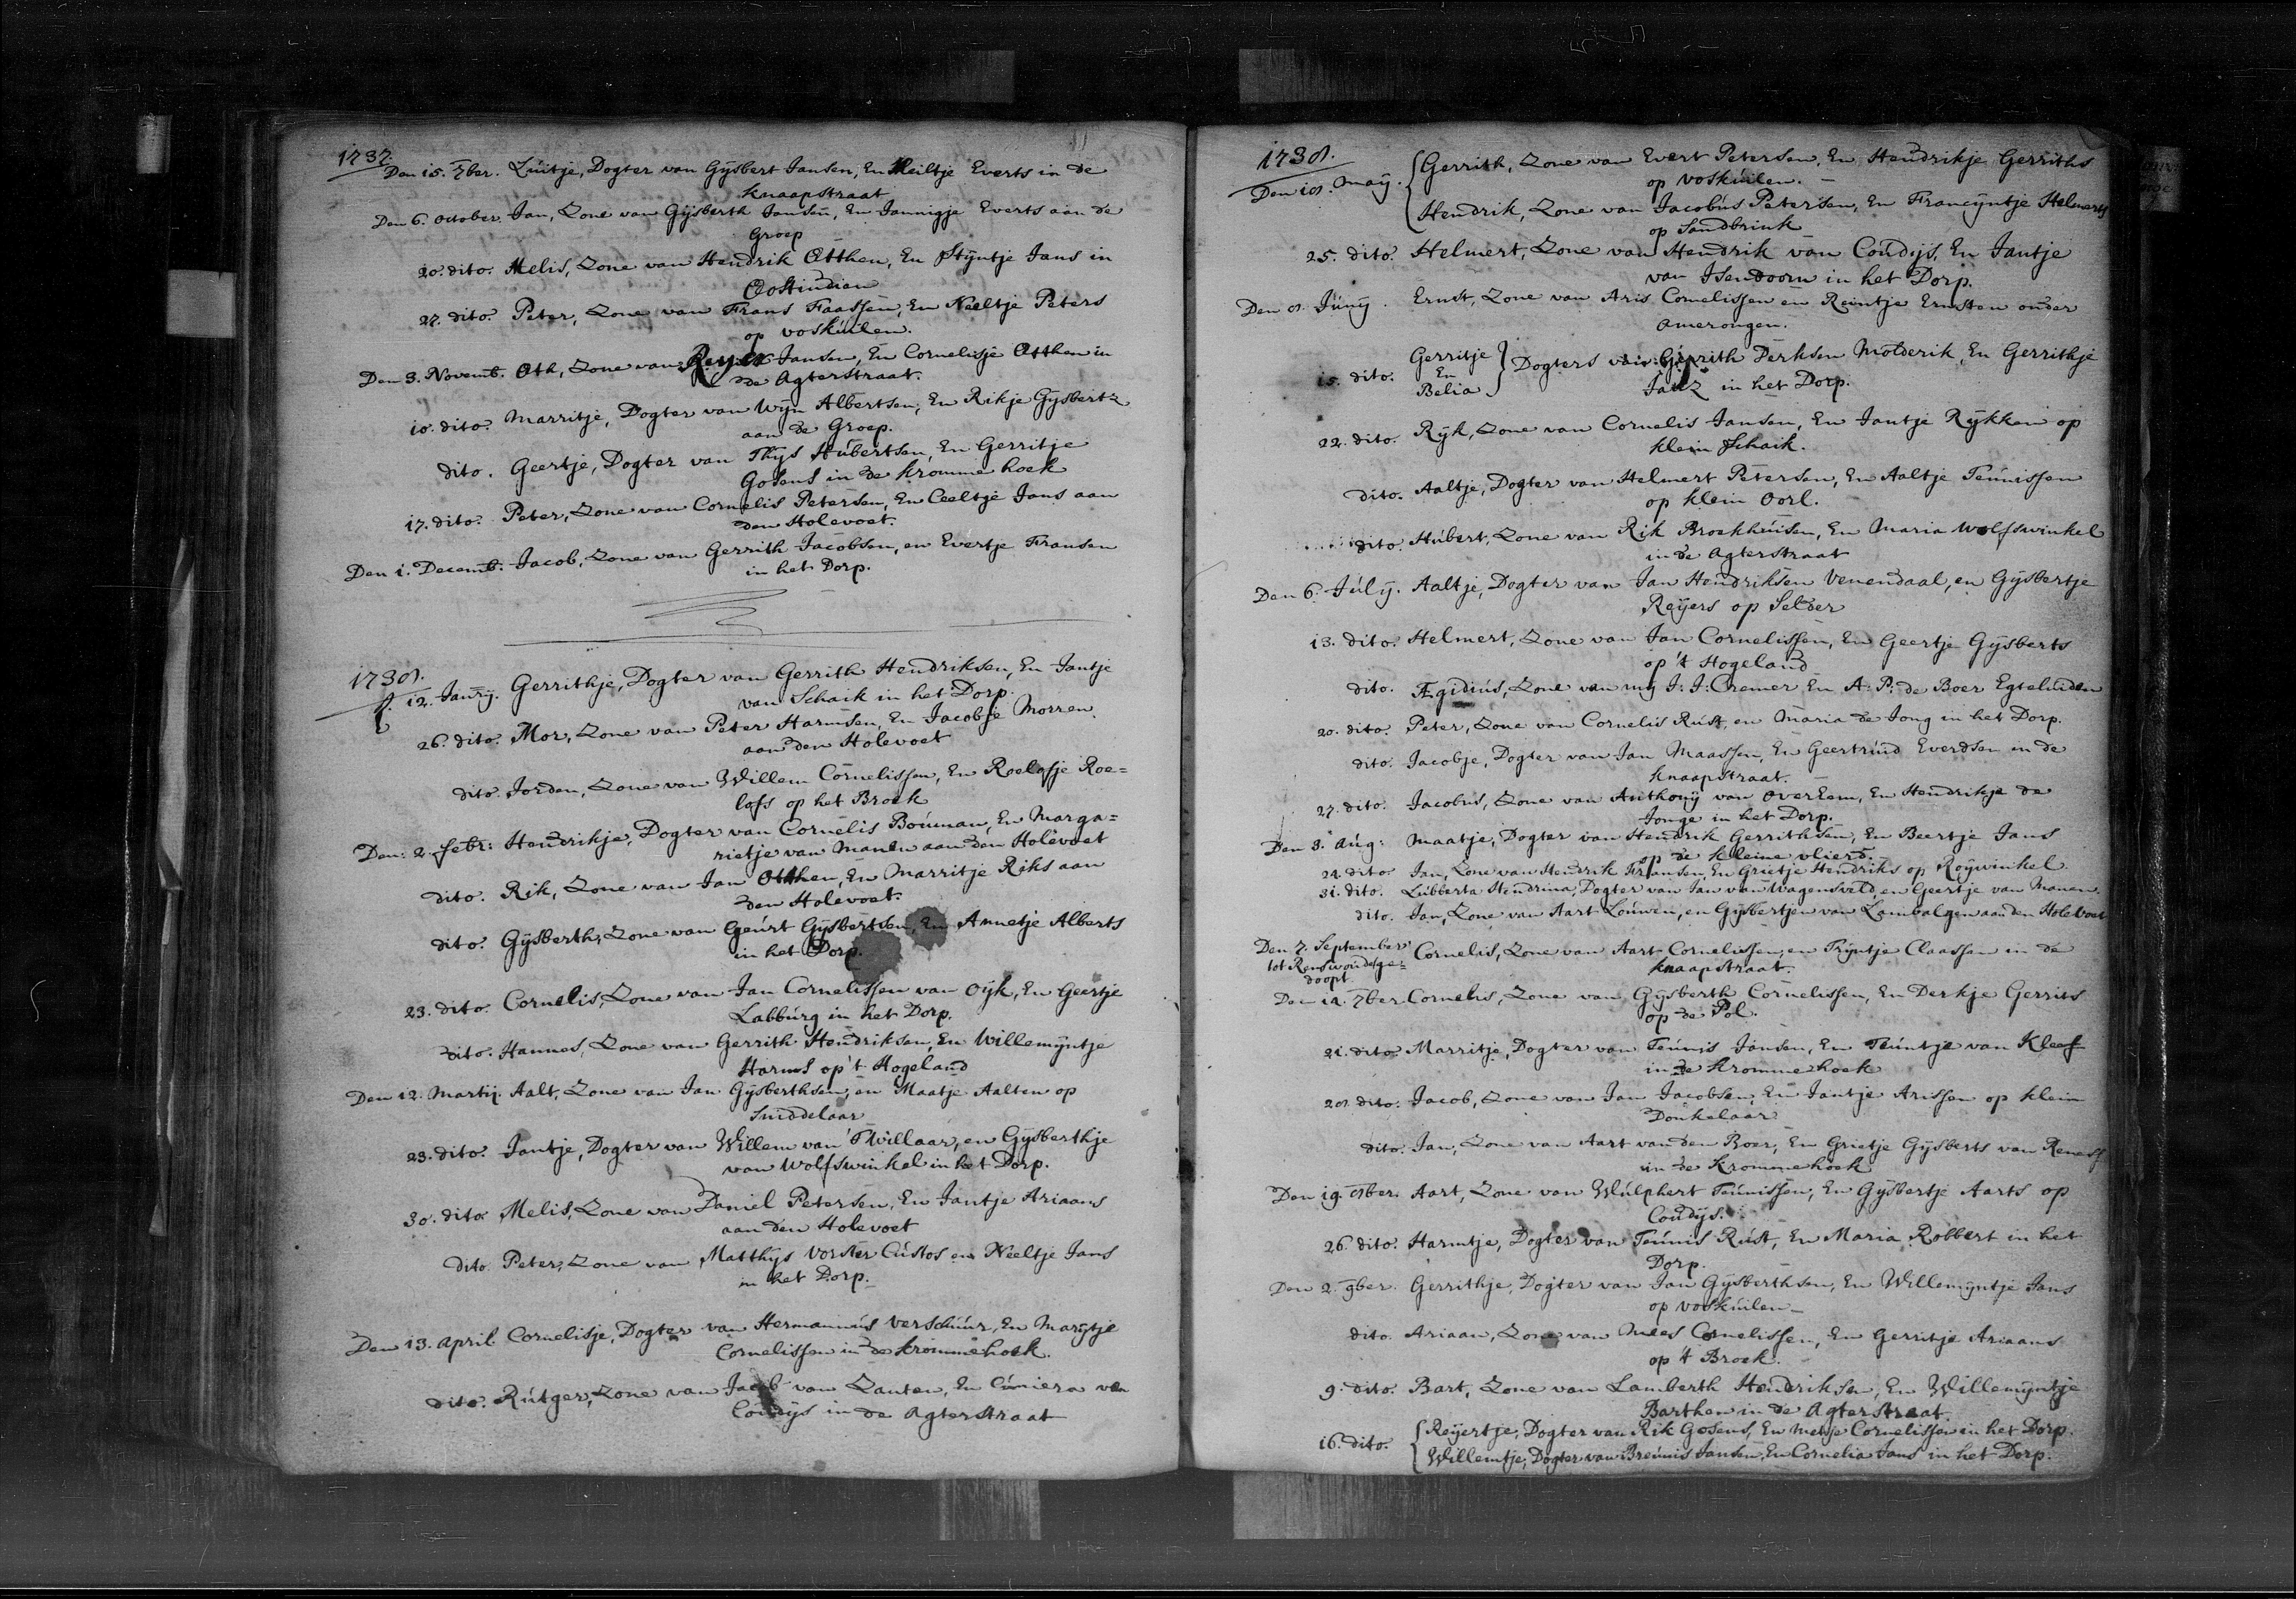 1737.
Den 15. 7ber. Luitje, Dogter van Gysbert Jansen, En Meiltje Everts in de
Knaapstraat
Den 6. October. Jan, Zone van Gijsberth Jansen, En Jannigje Everts aan de
Groep
20. dito. Melis, Zone van Hendrik Otthen, En Styntje Jans in
Oostindien
27. dito. Peter, Zone van Frans Faassen, En Neeltje Peters
op voskuilen.
Den 3. Novemb. Oth, Zone van Reyer Jansen, En Cornelisje Otthen in
de Agterstraat.
10. dito. Marritje, Dogter van Wyn Albertsen, En Rikje Gysbertz
aan de Groep.
dito. Geertje, Dogter van Thys Hubertsen, En Gerritje
Gosens in de kromme hoek
17. dito. Peter, Zone van Cornelis Petersen, En Ceeltje Jans aan
den Holevoet.
Den 1. Decemb. Jacob, Zone van Gerrith Jacobsen, en Evertje Fransen
in het Dorp.
1738.
12. Janry. Gerrithje, Dogter van Gerrith Hendriksen, En Jantje
van Schaik in het Dorp.
26. dito. Mor, Zone van Peter Harmsen, En Jacobje Morren
aan den Holevoet
dito. Jorden, Zone van Willem Cornelissen, En Roelofje Roe=
lofs op het Broek
Den: 2. febr: Hendrikje, Dogter van Cornelis Bouman, En Marga=
rietje van Manen aan den Holevoet
dito. Rik, Zone van Jan Otthen, En Marritje Riks aan
den Holevoet.
dito. Gysberth, Zone van Geurt Gysbertsen, En Annetje Alberts
in het Dorp.
23. dito. Cornelis, Zone van Jan Cornelissen van Oyk, En Geertje
Labburg in het Dorp.
dito. Hannes, Zone van Gerrith Hendriksen, En Willemyntje
Harms op 't Hogeland
Den 12. Martij. Aalt, Zone van Jan Gysberthsen, en Maatje Aalten op
Smiddelaar
23. dito. Jantje, Dogter van Willem van 'T Willaar, en Gysberthje
van Wolfswinkel in het Dorp.
30. dito. Melis, Zone van Daniel Petersen, En Jantje Ariaans
aan den Holevoet
dito. Peter, Zone van Matthys Vorster Custos en Neeltje Jans
in het Dorp.
Den 13. April Cornelisje, Dogter van Hermannus Verschuur, En Marytje
Cornelissen in de krommehoek.
dito. Rutger, Zone van Jacob van Zanten, En Cuniera van
Coudys in de Agterstraat
1738.
Den 18. May. Gerrith, Zone van Evert Petersen, En Hendrikje Gerriths
op voskuilen.
Hendrik, Zone van Jacobus Petersen, En Francyntje Helmerts
op Sandbrink
25. dito. Helmert, Zone van Hendrik van Coudys, En Jantje
van Isendoorn in het Dorp.
Den 8. Juny. Ernst, Zone van Aris Cornelissen en Reintje Ernsten onder
Amerongen.
Gerritje
15. dito. En Dogters van Gerrith Derksen Molderik, En Gerrithje
Belia Janz in het Dorp.
22. dito. Ryk, Zone van Cornelis Jansen, En Jantje Rykken op
klein Schaik.
dito. Aaltje, Dogter van Helmert Petersen, En Aaltje Teunissen
op klein Oorl.
dito. Hubert, Zone van Rik Broekhuisen, En Maria Wolfswinkel
in de Agterstraat
Den 6. July. Aaltje, Dogter van Jan Hendriksen Venendaal, en Gysbertje
Reyers op Selder
13. dito. Helmert, Zone van Jan Cornelissen, En Geertje Gysberts
op 't Hogeland
dito. Ægidius, Zone van my J: J: Cremer En A: P: de Boer Egteluiden
20. dito. Peter, Zone van Cornelis Rust, en Maria de Jong in het Dorp.
dito. Jacobje, Dogter van Jan Maassen, En Geertruid Everdsen in de
Knaapstraat.
27. dito. Jacobus, Zone van Anthony van OverEem, En Hendrikje de
Jonge in het Dorp.
Den 3. Aug: Maatje, Dogter van Hendrik Gerrithsen, En Beertje Jans
op de kleine vlierd.
24. dito Jan, Zone van Hendrik Fransen, En Grietje Hendriks op Roywinkel
31. dito. Lubberta Hendrina, Dogter van Jan van Wagensveld, en Geertje van Manen.
dito. Jan, Zone van Aart Louwen, en Gysbertjen van Lambalgen aan den Holevoet
Den 7. September
tot Renswoude ge=
doopt
Cornelis, Zone van Aart Cornelissen, en Tryntje Claassen in de
knaapstraat.
Den 14. 7ber Cornelis, Zone van Gysberth Cornelissen, En Derkje Gerrits
op de Pol.
21. dito. Marritje, Dogter van Teunis Jansen, En Teuntje van Kleef
in de krommehoek
28. dito. Jacob, Zone van Jan Jacobsen, En Jantje Arissen op klein
Donkelaar
dito. Jan, Zone van Aart van den Boer, En Grietje Gysberts van Reness
in de krommehoek
Den 19. 8ber. Aart, Zone van Wulphert Teunissen, En Gysbertje Aarts op
Coudys.
26. dito. Harmtje, Dogter van Teunis Rust, En Maria Robbert in het
Dorp.
Den 2. 9ber. Gerrithje, Dogter van Jan Gysberthsen, En Willemyntje Jans
op voskuilen
dito. Ariaan, Zone van Mees Cornelissen, En Gerritje Ariaans
op 't Broek.
9. dito. Bart, Zone van Lamberth Hendriksen, En Willemyntje
Barthen in de Agterstraat.
16. dito. Reyertje, Dogter van Rik Gosens, En Metje Cornelissen in het Dorp.
Willemtje, Dogter van Breunis Jansen, En Cornelia Jans in het Dorp.